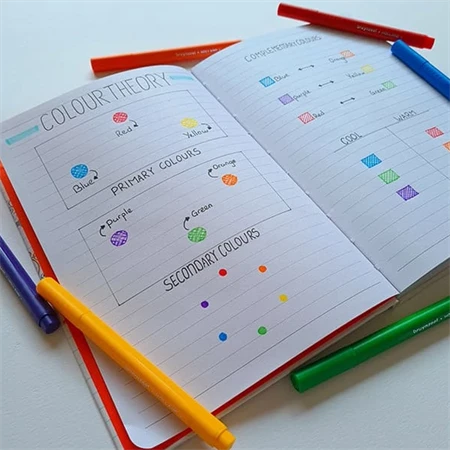 COLOUR THEORY
Red
Yellow
Blue
PRIMARY COLOURS
Orange
Purple
Green
SECONDARY COLOURS
COMPLEMENTARY COLOURS
Blue
Orange
Purple
Yellow
Red
Green
COOL
WARM
bruynzeel